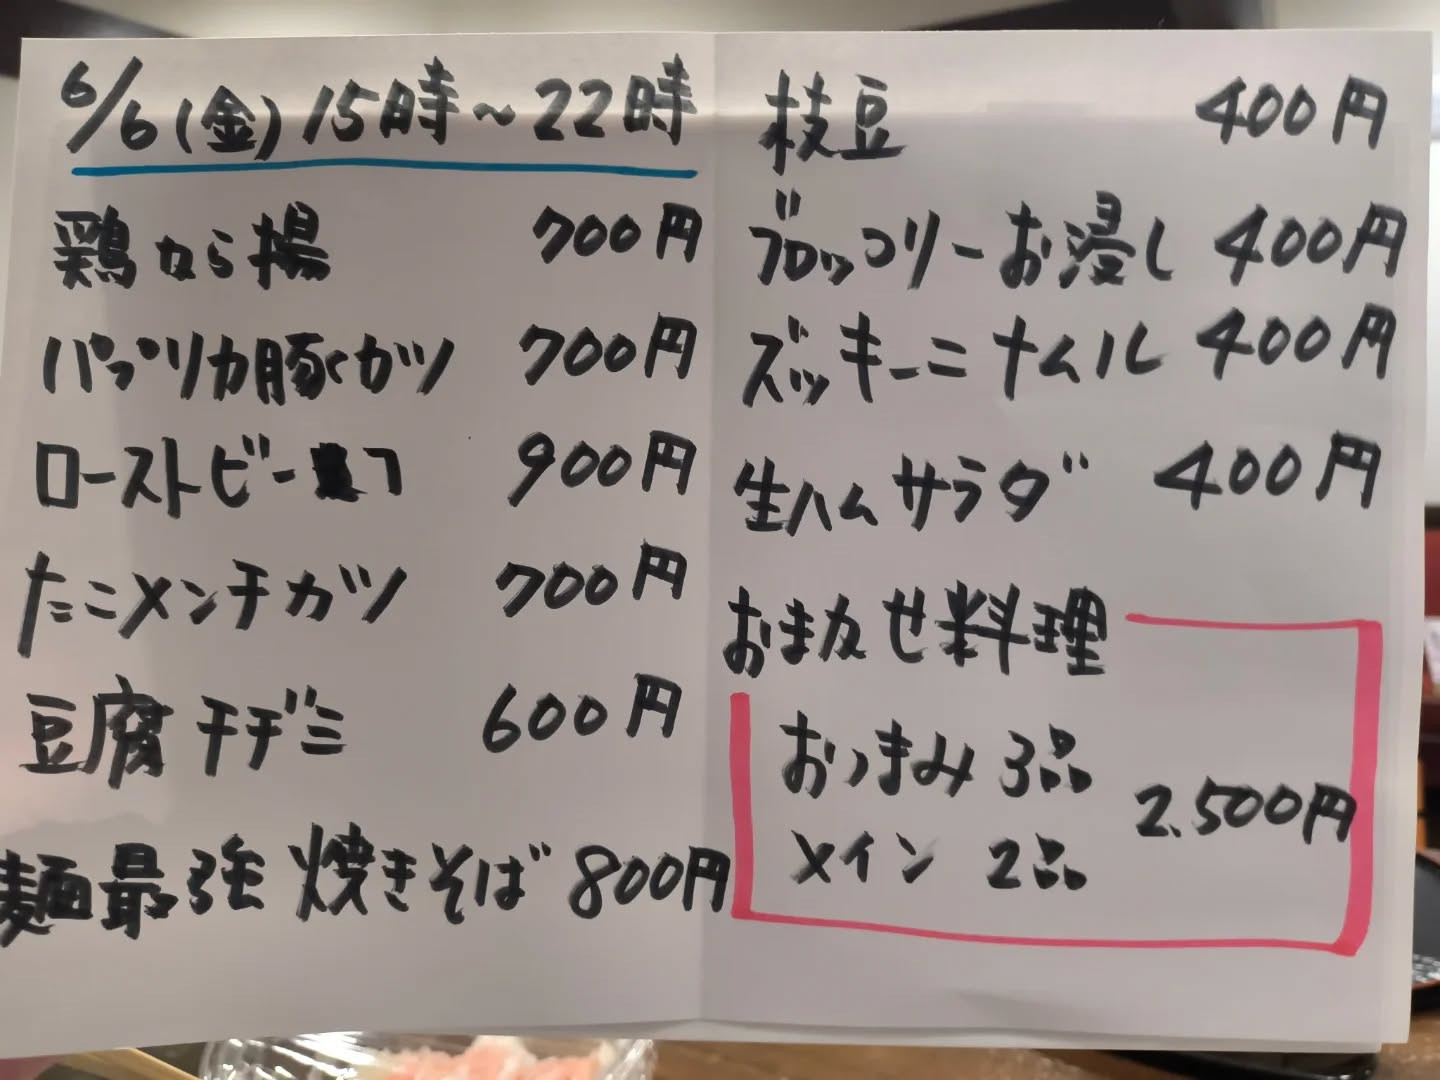 6/6(金)15時~22時
鶏から揚 700円
パプリカ豚カツ 700円
ローストビーフ 900円
たこメンチカツ 700円
豆腐チヂミ 600円
麺最強焼きそば 800円
枝豆 400円
ブロッコリーお浸し 400円
ズッキーニナムル 400円
生ハムサラダ 400円
おまかせ料理
おつまみ3品
メイン 2品
2.500円